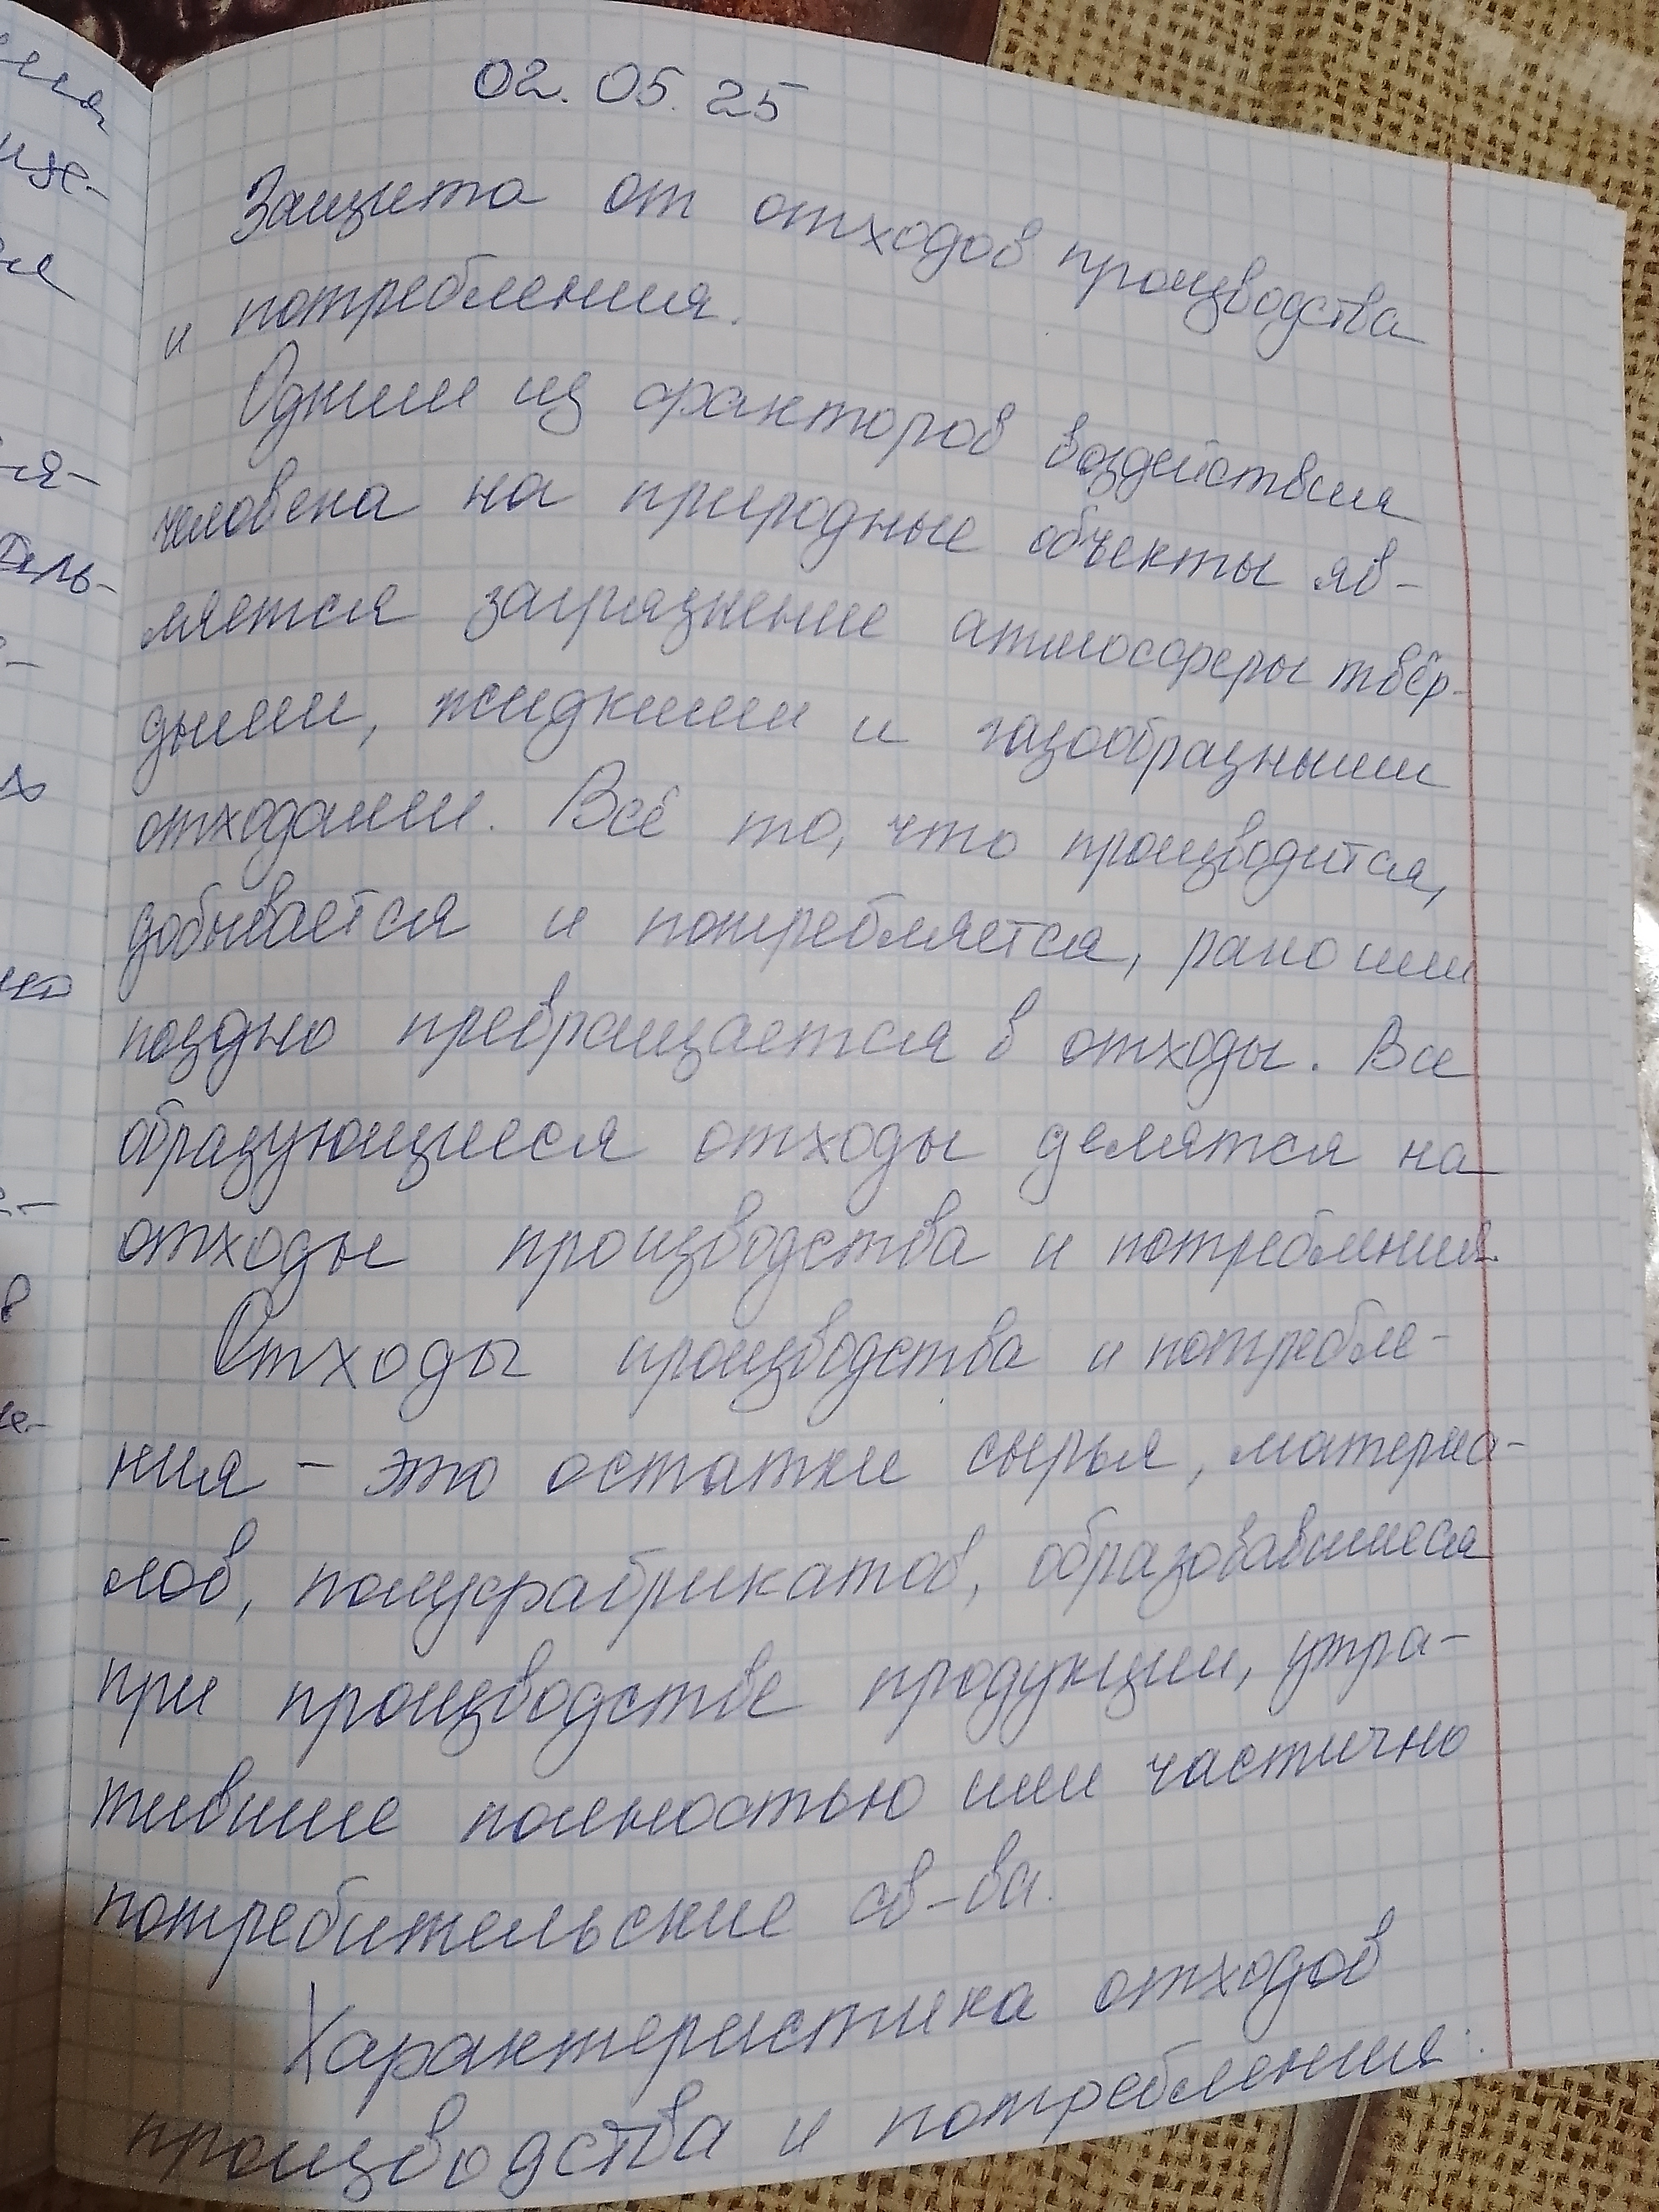 02.05.25
Защита от отходов производства
и потребления.
Одним из факторов воздействия
человека на природные объекты яв-
ляется загрязнение атмосферы твёр-
дыми, жидкими и газообразными
отходами. Всё то, что производится,
добывается и потребляется, рано или
поздно превращается в отходы. Все
образующиеся отходы делятся на
отходы производства и потребления.
Отходы производства и потребле-
ния - это остатки сырья, материа-
лов, полуфабрикатов, образовавшиеся
при производстве продукции, утра-
тившие полностью или частично
потребительские св-ва.
Характеристика отходов
производства и потребления: